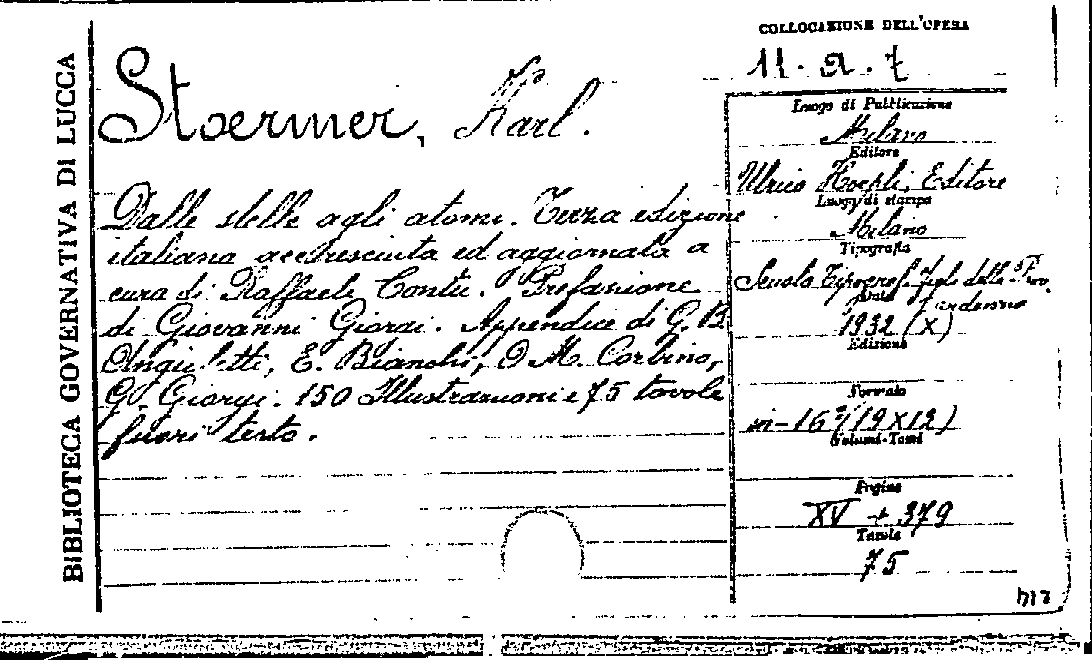 BIBLIOTECA GOVERNATIVA DI LUCCA
Stoermer, Karl.
Dalle stelle agli atomi. Terza edizione
italiana accresciuta ed aggiornata a
cura di Raffaele Contu. Prefazione
di Giovanni Giorgi. Appendice di G. B.
Angioletti, E. Bianchi, O. M. Corbino,
G. Giorgi. 150 Illustrazioni e 75 tavole
fuori testo.
COLLOCAZIONE DELL'OPERA
11. a. 7
Luogo di Pubblicazione
Milano
Editore
Ulrico Hoepli, Editore
Luogo di stampa
Milano
Tipografia
Scuola Tipograf. Figli della Prov
Data
1932 (X)
Edizione
Formato
in-16º (19 X 12)
Volumi-Tomi
Pagine
XV + 379
Tavole
75